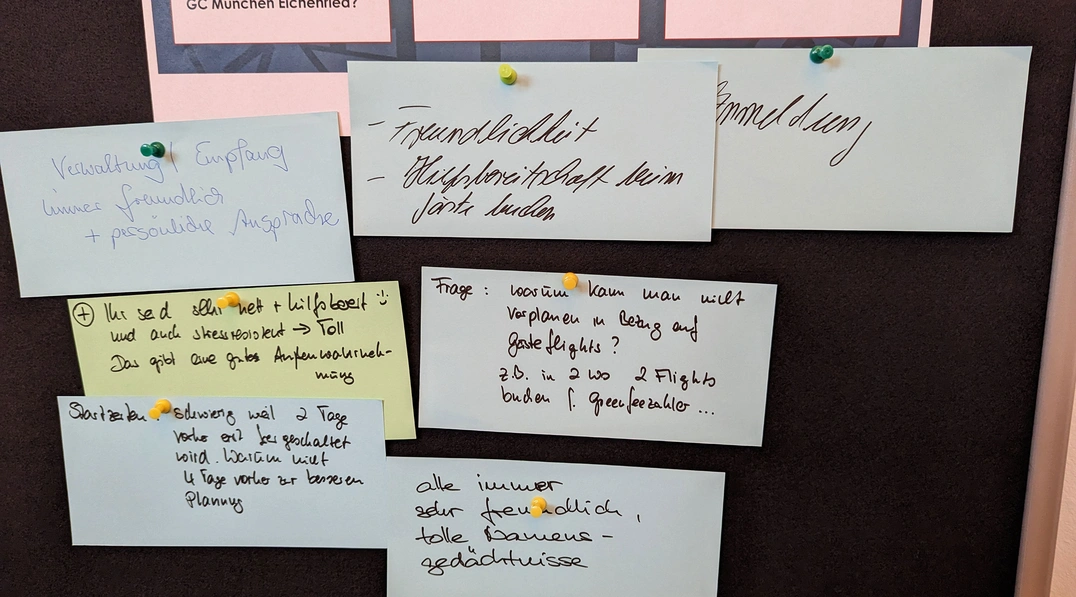 GC München Eichenried?
- Freundlichkeit
- Hilfsbereitschaft beim
Gäste buchen
Anmeldung
Verwaltung / Empfang
immer freundlich
+ persönliche Ansprache
+ Ihr seid sehr nett + hilfsbereit :)
und auch stressresistent → Toll
Das gibt eine gute Außenwahrneh-
mung
Frage: warum kann man nicht
vorplanen in Bezug auf
Gästeflights?
z.B. in 2 Wo 2 Flights
buchen f. Greenfeezahler ...
Startzeiten: schwierig weil 2 Tage
vorher erst freigeschaltet
wird. Warum nicht
4 Tage vorher zur besseren
Planung
alle immer
sehr freundlich,
tolle Namens-
gedächtnisse